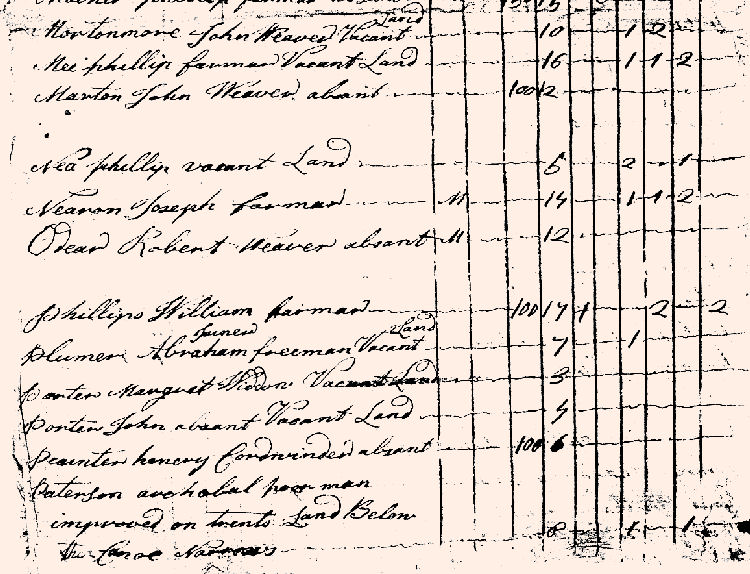 Land
Mortonmore John Weaver Vacant 10 1 2
Mee phillip farmar Vacant Land 16 1 1 2
Marton John Weaver absant 100 12
Nea phillip vacant Land 5 2 1
Nearon Joseph farmar M 14 1 1 2
Odear Robert Weaver absant M 12
phillips William farmar 100 17 1 2 2
Juner Land
plumer Abraham freeman Vacant 7 1
porter Margret Widow Vacant Land 3
porter John absant Vacant Land 4
peainter henery Cordwinder absant 100 6
paterson archabal poor man
improved on trents Land Below
the Canoe Narrows 8 1 1